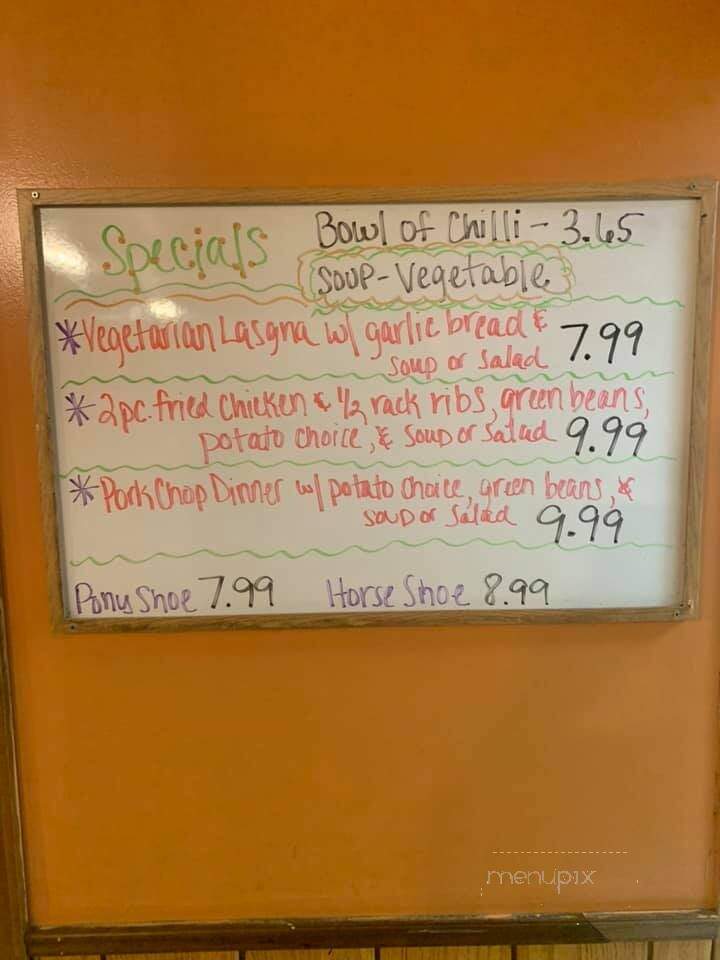 Specials
Bowl of Chilli - 3.65
Soup - Vegetable
*Vegetarian Lasgna w/ garlic bread &
soup or salad 7.99
*2pc. fried Chicken & 1/2 rack ribs, green beans,
potato choice, & soup or salad 9.99
*Pork Chop Dinner w/ potato choice, green beans, &
soup or salad 9.99
Pony Shoe 7.99 Horse Shoe 8.99
menupix